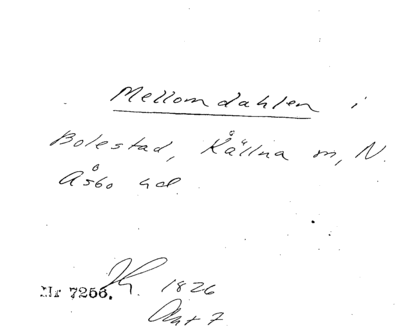 Mellomdahlen i
Bolestad, Källna sn, N.
Åsbo hd.
1826
Nr 7256.
Akt 7